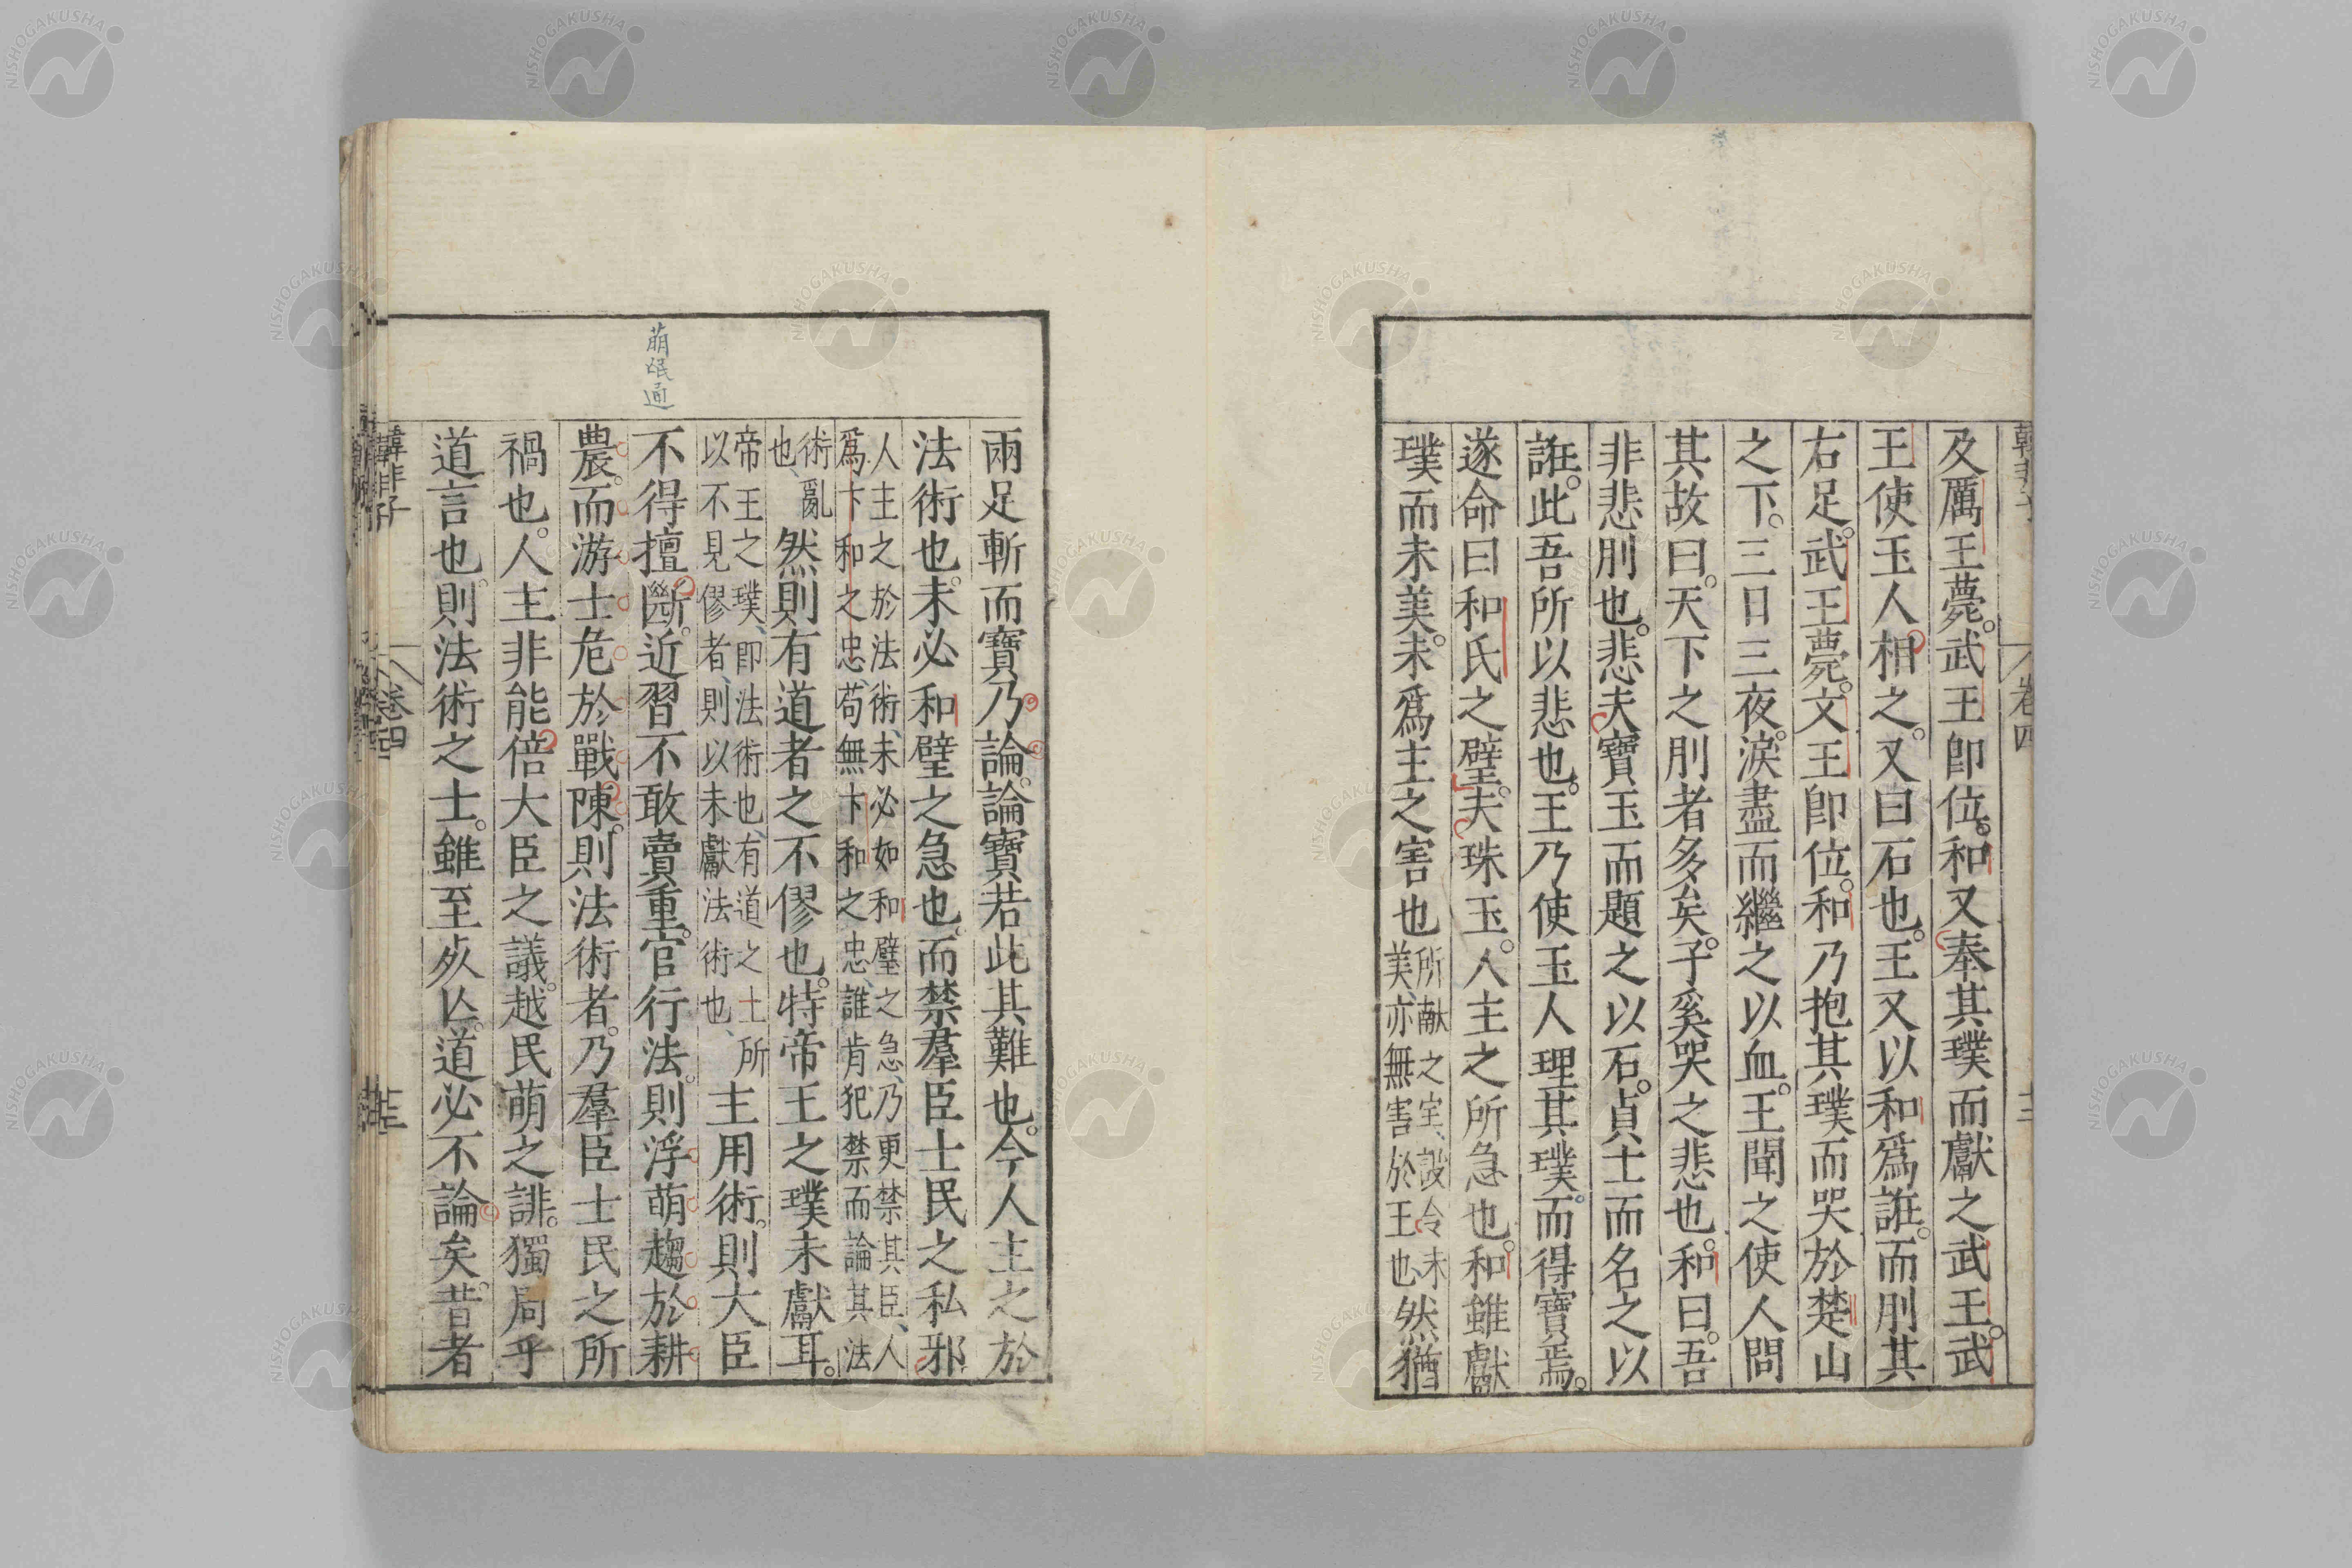 及厲王薨。武王卽位。和又奉其璞而獻之武王。武
王使玉人相之。又曰石也。王又以和爲誑。而刖其
右足。武王薨。文王卽位。和乃抱其璞而哭於楚山
之下。三日三夜。淚盡而繼之以血。王聞之使人問
其故曰。天下之刖者多矣。子奚哭之悲也。和曰。吾
非悲刖也。悲夫寶玉而題之以石。貞士而名之以
誑。此吾所以悲也。王乃使玉人理其璞。而得寶焉。
遂命曰和氏之璧。夫珠玉。人主之所急也。和雖獻
璞而未美。未爲主之害也
所献之宝、設令未
美、亦無害於王也
然猶
兩足斬而寶乃論。論寶若此其難也。今人主之於
法術也。未必和璧之急也。而禁羣臣士民之私邪
人主之於法術、未必如和璧之急、乃更禁其臣、人
爲卞和之忠、苟無卞和之忠、誰肯犯禁而論其法
術亂
也、
然則有道者之不僇也。特帝王之璞未獻耳。
帝王之璞、卽法術也、有道之士所
以不見僇者、則以未獻法術也、
主用術。則大臣
不得擅斷。近習不敢賣重。官行法。則浮萌趨於耕
農。而游士危於戰陳。則法術者。乃羣臣士民之所
禍也。人主非能倍大臣之議。越民萌之誹。獨周乎
道言也。則法術之士。雖至死亡。道必不論矣。昔者
萌氓通
韓非子
卷四
十三
NISHOGAKUSHA